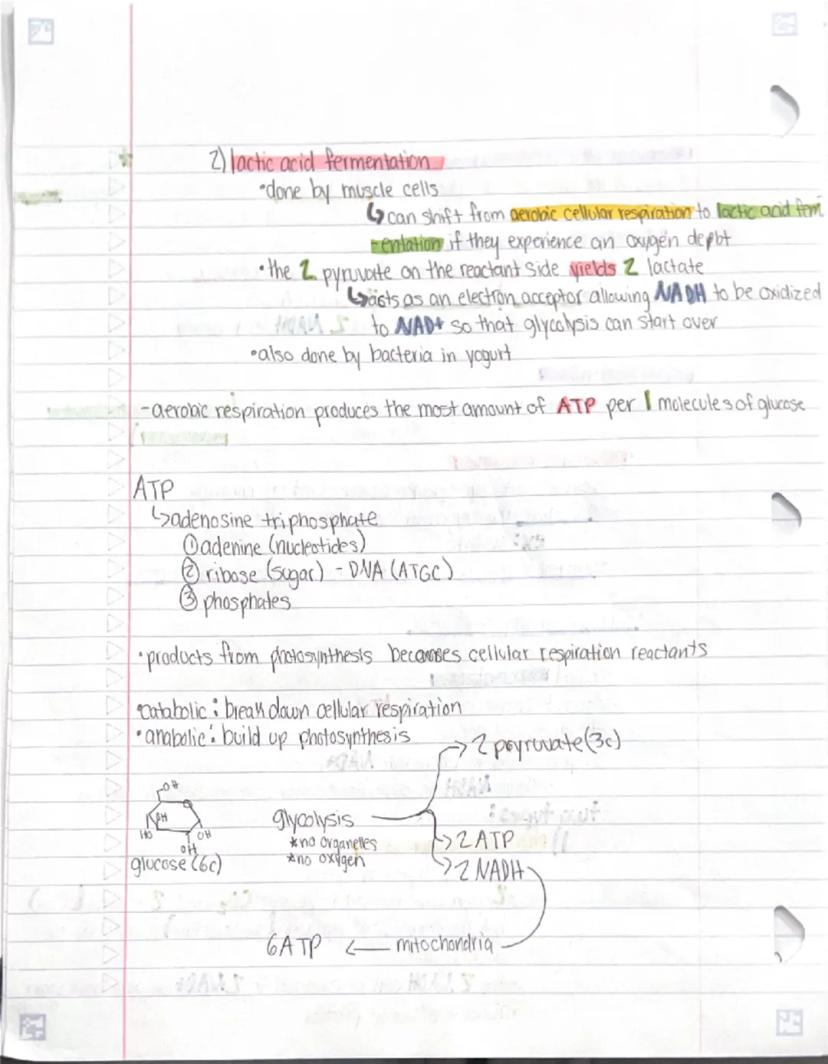 2) lactic acid fermentation
•done by muscle cells
↳can shift from aerobic cellular respiration to lactic acid ferm
-entation if they experience an oxygen depbt
•the 2 pyruvate on the reactant side yields 2 lactate
↳acts as an electron acceptor allowing NADH to be oxidized
to NAD+ so that glycolysis can start over
•also done by bacteria in yogurt
-aerobic respiration produces the most amount of ATP per 1 molecules of glucose
ATP
↳adenosine triphosphate
①adenine (nucleotides)
②ribose (sugar) - DNA (ATGC)
③phosphates
•products from photosynthesis becomes cellular respiration reactants
•catabolic: break down cellular respiration
•anabolic: build up photosynthesis
→2 poyruvate (3c)
OH
OH
HO OH
OH
glucose (6c)
glycolysis
*no organelles
*no oxygen
→2 ATP
→2 NADH
6ATP ← mitochondria